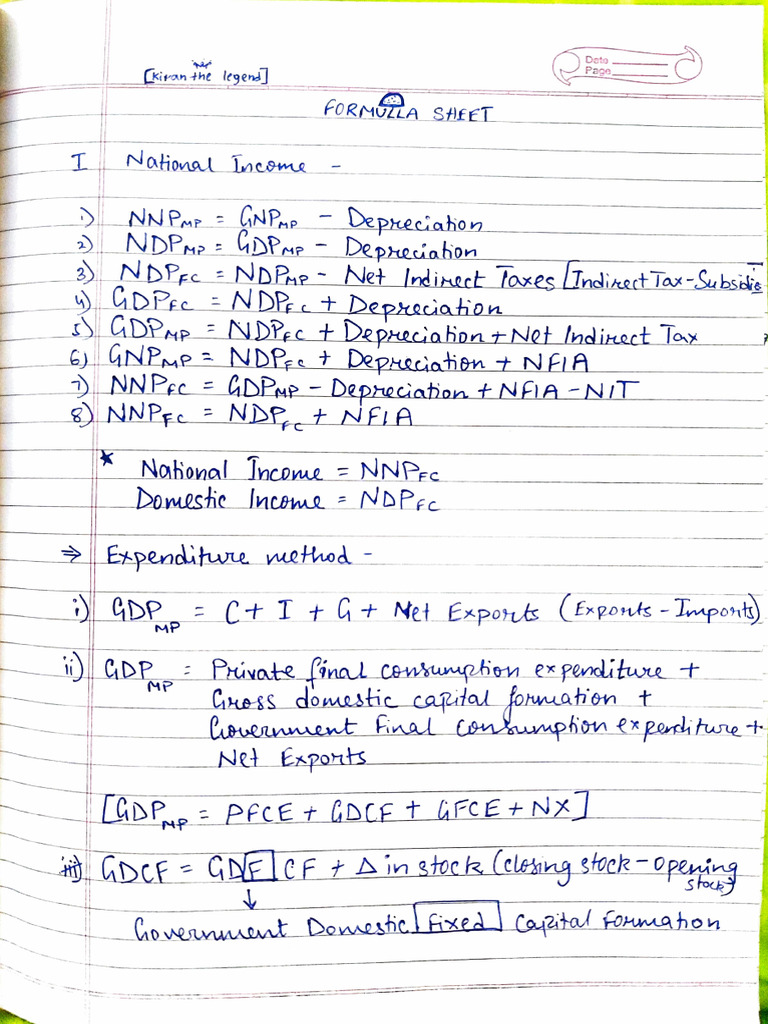 [Kiran the legend]
Date
Page
FORMULLA SHEET
I National Income -
1) NNP MP = GNP MP - Depreciation
2) NDP MP = GDP MP - Depreciation
3) NDP FC = NDP MP - Net Indirect Taxes [Indirect Tax-Subsidie
4) GDP FC = NDP FC + Depreciation
5) GDP MP = NDP FC + Depreciation + Net Indirect Tax
6) GNP MP = NDP FC + Depreciation + NFIA
7) NNP FC = GDP MP - Depreciation + NFIA - NIT
8) NNP FC = NDP FC + NFIA
* National Income = NNP FC
Domestic Income = NDP FC
⇒ Expenditure method -
i) GDP MP = C + I + G + Net Exports (Exports - Imports)
ii) GDP MP = Private final consumption expenditure +
Gross domestic capital formation +
Government Final consumption expenditure +
Net Exports
[GDP MP = PFCE + GDCF + GFCE + NX]
iii) GDCF = GDFCF + Δ in stock (closing stock - opening
stock)
↓
Government Domestic Fixed Capital Formation